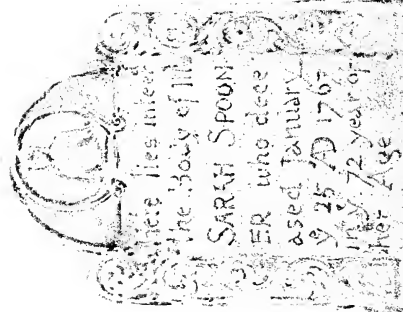 Here lies interr
the Body of M
SARAH SPOON
ER who dece
ased January
y 25 AD 1767
in y 72 year of
her Age